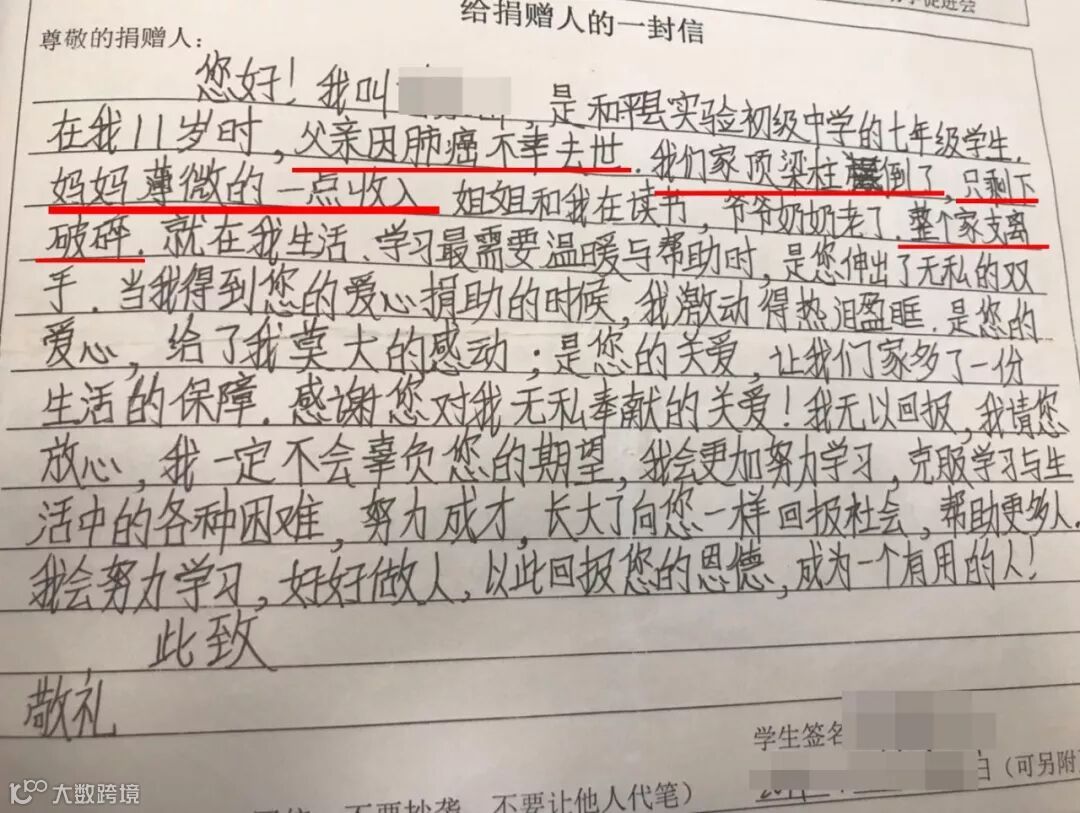 促进会
给捐赠人的一封信
尊敬的捐赠人：
您好！我叫，是和平县实验初级中学的七年级学生.
在我11岁时，父亲因肺癌不幸去世.我们家顶梁柱倒了，只剩下
妈妈薄微的一点收入 姐姐和我在读书，爷爷奶奶老了.整个家支离
破碎.就在我生活、学习最需要温暖与帮助时，是您伸出了无私的双
手.当我得到您的爱心捐助的时候，我激动得热泪盈眶.是您的
爱心，给了我莫大的感动；是您的关爱，让我们家多了一份
生活的保障.感谢您对我无私奉献的关爱！我无以回报，我请您
放心，我一定不会辜负您的期望，我会更加努力学习，克服学习与生
活中的各种困难，努力成才，长大了向您一样回报社会，帮助更多人.
我会努力学习，好好做人，以此回报您的恩德，成为一个有用的人！
此致
敬礼
学生签名
日（可另附
不要抄袭，不要让他人代笔）
大数跨境